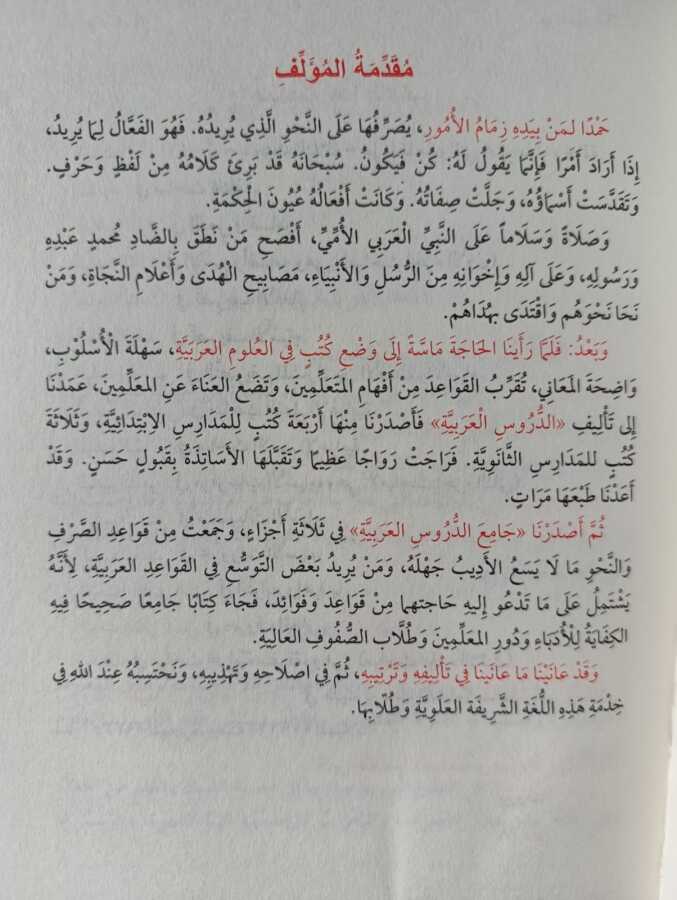 مُقَدِّمَةُ المُؤَلِّفِ
حَمْدًا لمَنْ بِيَدِهِ زِمَامُ الأُمُورِ، يُصَرِّفُهَا عَلَى النَّحْوِ الَّذِي يُرِيدُهُ. فَهُوَ الفَعَّالُ لِمَا يُرِيدُ،
إِذَا أَرَادَ أَمْرًا فَإِنَّمَا يَقُولُ لَهُ: كُنْ فَيَكُونُ. سُبْحَانَهُ قَدْ بَرِئَ كَلَامُهُ مِنْ لَفْظٍ وَحَرْفٍ.
وَتَقَدَّسَتْ أَسْمَاؤُهُ، وَجَلَّتْ صِفَاتُهُ. وَكَانَتْ أَفْعَالُهُ عُيُونَ الْحِكْمَةِ.
وَصَلَاةً وَسَلَاماً عَلَى النَّبِيِّ الْعَرَبِي الأُمِّيِّ، أَفْصَحِ مَنْ نَطَقَ بِالضَّادِ مُحمدٍ عَبْدِهِ
وَرَسُولِهِ، وَعَلَى آلِهِ وَإِخْوَانِهِ مِنَ الرُّسُلِ وَالأَنْبِيَاءِ، مَصَابِيحِ الْهُدَى وَأَعْلَامِ النَّجَاةِ، وَمَنْ
نَحَا نَحْوَهُم وَاقْتَدَى بِهُدَاهُمْ.
وَبَعْدُ: فَلَمَّا رَأَينَا الحَاجَةَ مَاسَّةً إِلَى وَضْعِ كُتُبٍ فِي العُلُومِ العَرَبَيَّةِ، سَهْلَةَ الْأُسْلُوبِ،
وَاضِحَةَ المَعَانِي، تُقَرِّبُ القَوَاعِدَ مِنْ أَفْهَامِ المُتَعَلِّمِينَ، وَتَضَعُ العَنَاءَ عَنِ المَعَلِّمِينَ، عَمَدْنَا
إِلى تَأْلِيفِ «الدُّرُوسِ الْعَرَبِيَّةِ» فَأَصْدَرْنَا مِنْهَا أَرْبَعَةَ كُتُبٍ لِلْمَدَارِسِ الِابْتِدَائِيَّةِ، وَثَلَاثَةَ
كُتُبٍ للمَدَارِسِ الثَّانَوِيَّةِ. فَرَاجَتْ رَوَاجًا عَظِيمًا وَتَقَبَّلَهَا الأَسَاتِذَةُ بِقَبُولٍ حَسَنٍ. وَقَدْ
أَعَدْنَا طَبْعَهَا مَرَاتٍ.
ثُمَّ أَصْدَرْنَا «جَامِعَ الدُّرُوسِ العَرَبِيَّةِ» فِي ثَلَاثَةِ أَجْزَاءٍ، وَجَمَعْتُ مِنْ قَوَاعِدِ الصَّرْفِ
وَالنَّحْوِ مَا لَا يَسَعُ الأَدِيبُ جَهْلَهُ، وَمَنْ يُرِيدُ بَعْضَ التَّوَسُّعِ فِي القَوَاعِدِ العَرَبِيَّةِ، لِأَنَّهُ
يَشْتَمِلُ عَلَى مَا تَدْعُو إليهِ حَاجتهما مِنْ قَوَاعِدَ وَفَوَائِدَ، فَجَاءَ كِتَابًا جَامعًا صَحِيحًا فِيهِ
الكِفَايَةُ لِلْأُدَبَاءِ وَدُورِ المعَلِّمِينَ وَطُلَّابِ الصُّفُوفِ العَالِيَةِ.
وَقَدْ عَانَيْنَا مَا عَانَينَا فِي تَأْلِيفِهِ وَتَرْتِيبِهِ، ثُمَّ فِي اصْلَاحِهِ وَتَهْذِيبِهِ، وَنَحْتَسِبُهُ عِنْدَ اللهِ فِي
خِدْمَةِ هَذِهِ اللُّغَةِ الشَّرِيفَةِ العَلَوِيَّةِ وَطُلَّابِهَا.